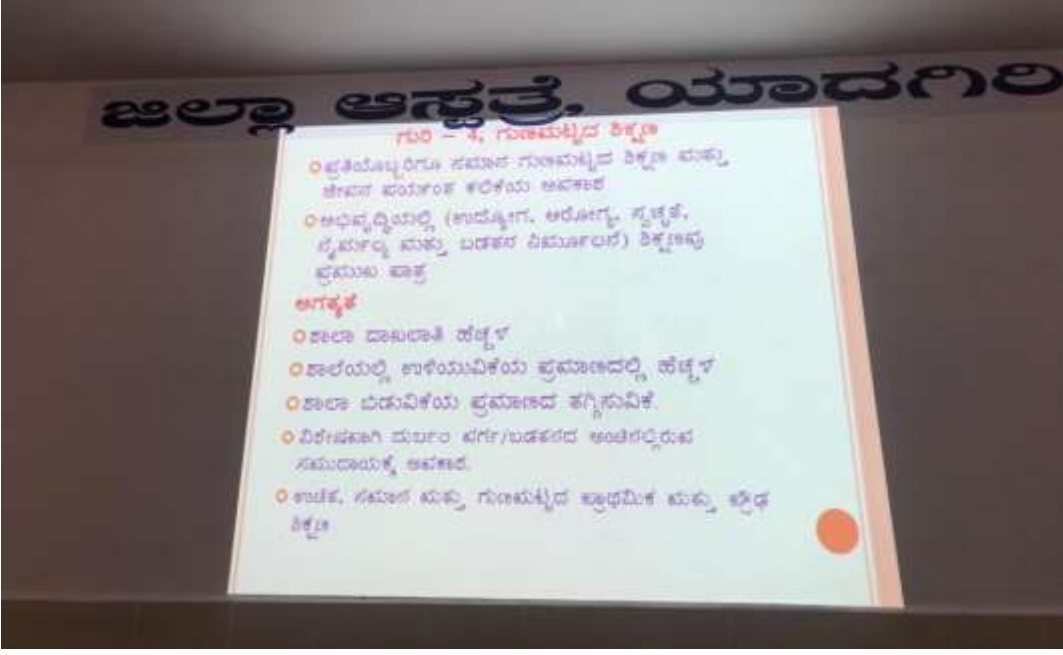 ಜಿಲ್ಲಾ ಆಸ್ಪತ್ರೆ, ಯಾದಗಿರಿ
ಗುರಿ – 4, ಗುಣಮಟ್ಟದ ಶಿಕ್ಷಣ
ಪ್ರತಿಯೊಬ್ಬರಿಗೂ ಸಮಾನ ಗುಣಮಟ್ಟದ ಶಿಕ್ಷಣ ಮತ್ತು
ಜೀವನ ಪರ್ಯಂತ ಕಲಿಕೆಯ ಅವಕಾಶ
ಅಭಿವೃದ್ಧಿಯಲ್ಲಿ (ಉದ್ಯೋಗ, ಆರೋಗ್ಯ, ಸ್ವಚ್ಛತೆ,
ನೈರ್ಮಲ್ಯ ಮತ್ತು ಬಡತನ ನಿರ್ಮೂಲನೆ) ಶಿಕ್ಷಣವು
ಪ್ರಮುಖ ಪಾತ್ರ
ಅಗತ್ಯತೆ
ಶಾಲಾ ದಾಖಲಾತಿ ಹೆಚ್ಚಳ
ಶಾಲೆಯಲ್ಲಿ ಉಳಿಯುವಿಕೆಯ ಪ್ರಮಾಣದಲ್ಲಿ ಹೆಚ್ಚಳ
ಶಾಲಾ ಬಿಡುವಿಕೆಯ ಪ್ರಮಾಣದ ತಗ್ಗಿಸುವಿಕೆ.
ವಿಶೇಷವಾಗಿ ದುರ್ಬಲ ವರ್ಗ/ಬಡತನದ ಅಂಚಿನಲ್ಲಿರುವ
ಸಮುದಾಯಕ್ಕೆ ಅವಕಾಶ.
ಉಚಿತ, ಸಮಾನ ಮತ್ತು ಗುಣಮಟ್ಟದ ಪ್ರಾಥಮಿಕ ಮತ್ತು ಪ್ರೌಢ
ಶಿಕ್ಷಣ